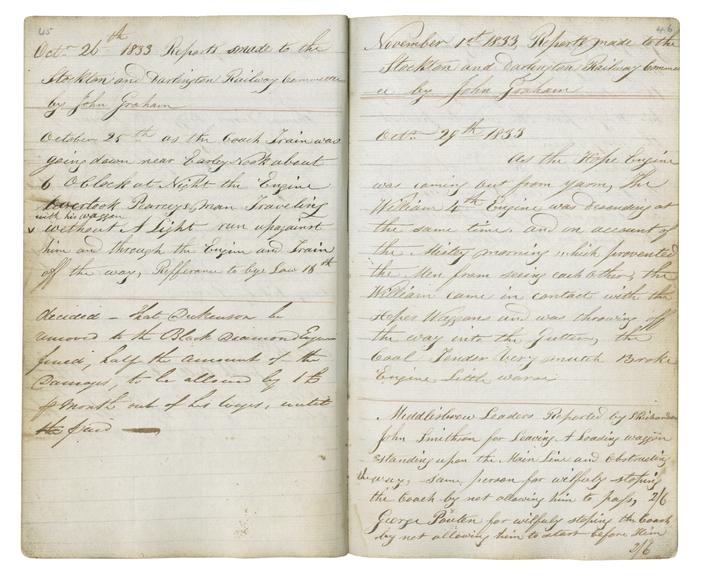 45
Octr 26th 1833 Reports made to the
Stockton and Darlington Railway Committee
by John Graham
October 25th as the Coach Train was
going down near Earley Nook about
6 OClock at Night the Engine
overtook Pearceys Man Traveling
with his waggon
without A Light run up against
him and through the Engine and Train
off the way, Refferance to bye Law 18th
decided - that Dickenson be
removed to the Black Diamond Engine
fined, half the amount of the
Damages, to be allowed by 1 £
pr Month out of his wages, untill
the fined
46
November 1st 1833, Reports made to the
Stockton and Darlington Railway Commi
ee by John Graham
Octr 29th 1833
As the Hope Engine
was coming out from yarm, The
William 4th Engine was decending at
the same time, and on account of
the Misty morning which prevented
the Men from seeing each other, the
William came in contact with the
Hopes Waggons and was throwing off
the way into the Gutter, the
Coals Tender very mutch Broke
Engine Little worse
Middlesbrew Leaders Reported by Richardson
John Smithson for Leaving A Loading waggon
Standing upon the Main Line and obstructing
the way, same person for wilfuly stoping
the Coach by not allowing him to pass, 2/6
George Pouten for wilfuly stoping the Coach
by not allowing him to start before Him
2/6